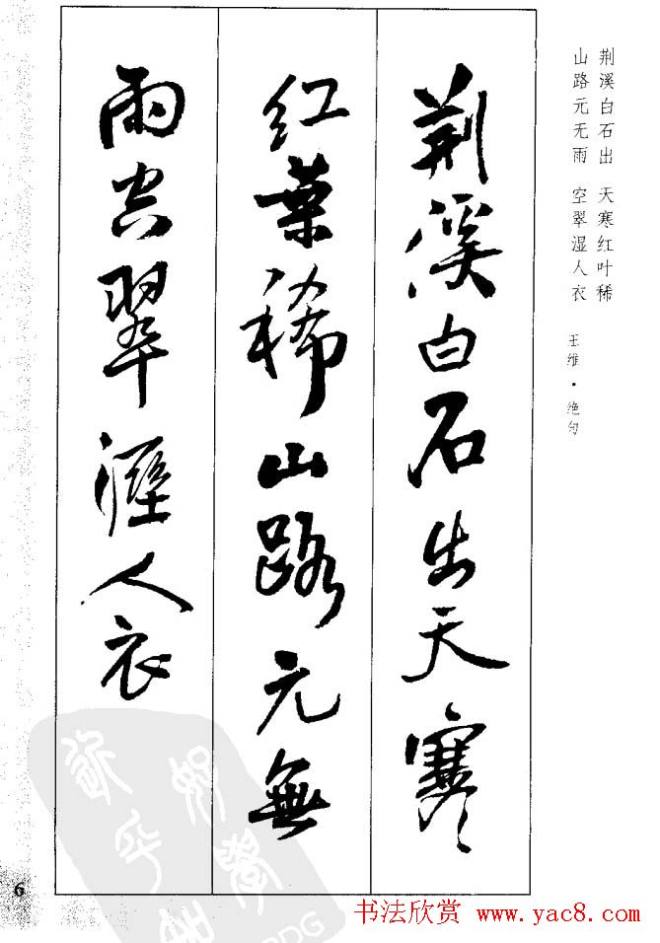 荆溪白石出 天寒红叶稀
山路元无雨 空翠湿人衣
王维·绝句
荆溪白石出天寒
红葉稀山路元無
雨空翠溼人衣
6
书法欣赏 www.yac8.com